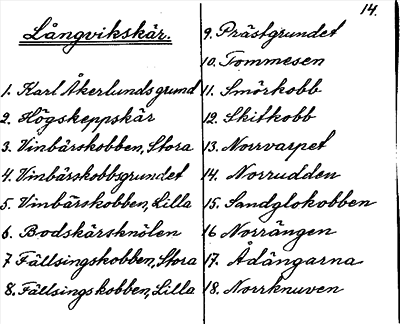 14.
Långvikskär.
1. Karl Åkerlunds grund
2. Högskeppskär
3. Vinbärskobben, Stora
4. Vinbärskobbsgrundet
5. Vinbärskobben, Lilla
6. Bodskärsknölen
7 Fällsingskobben, Stora
8. Fällsingskobben, Lilla
9. Prästgrundet
10. Tommesen
11. Smörkobb
12. Skitkobb
13. Norrvarpet
14. Norrudden
15. Sandglokobben
16 Norrängen
17. Ådängarna
18. Norrknuven